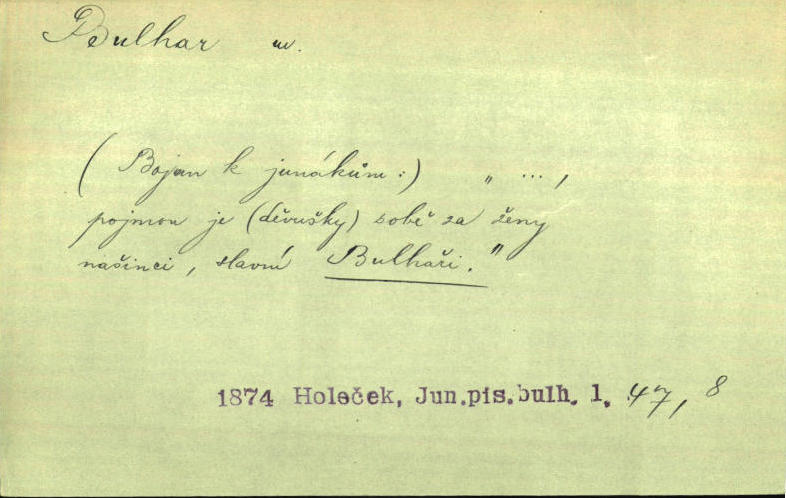 Bulhar m.
(Bojan k junákům:) „ ...,
pojmou je (děvušky) sobě za ženy
našinci, slavní Bulhaři."
1874 Holeček, Jun.pís.bulh. 1. 47, 8